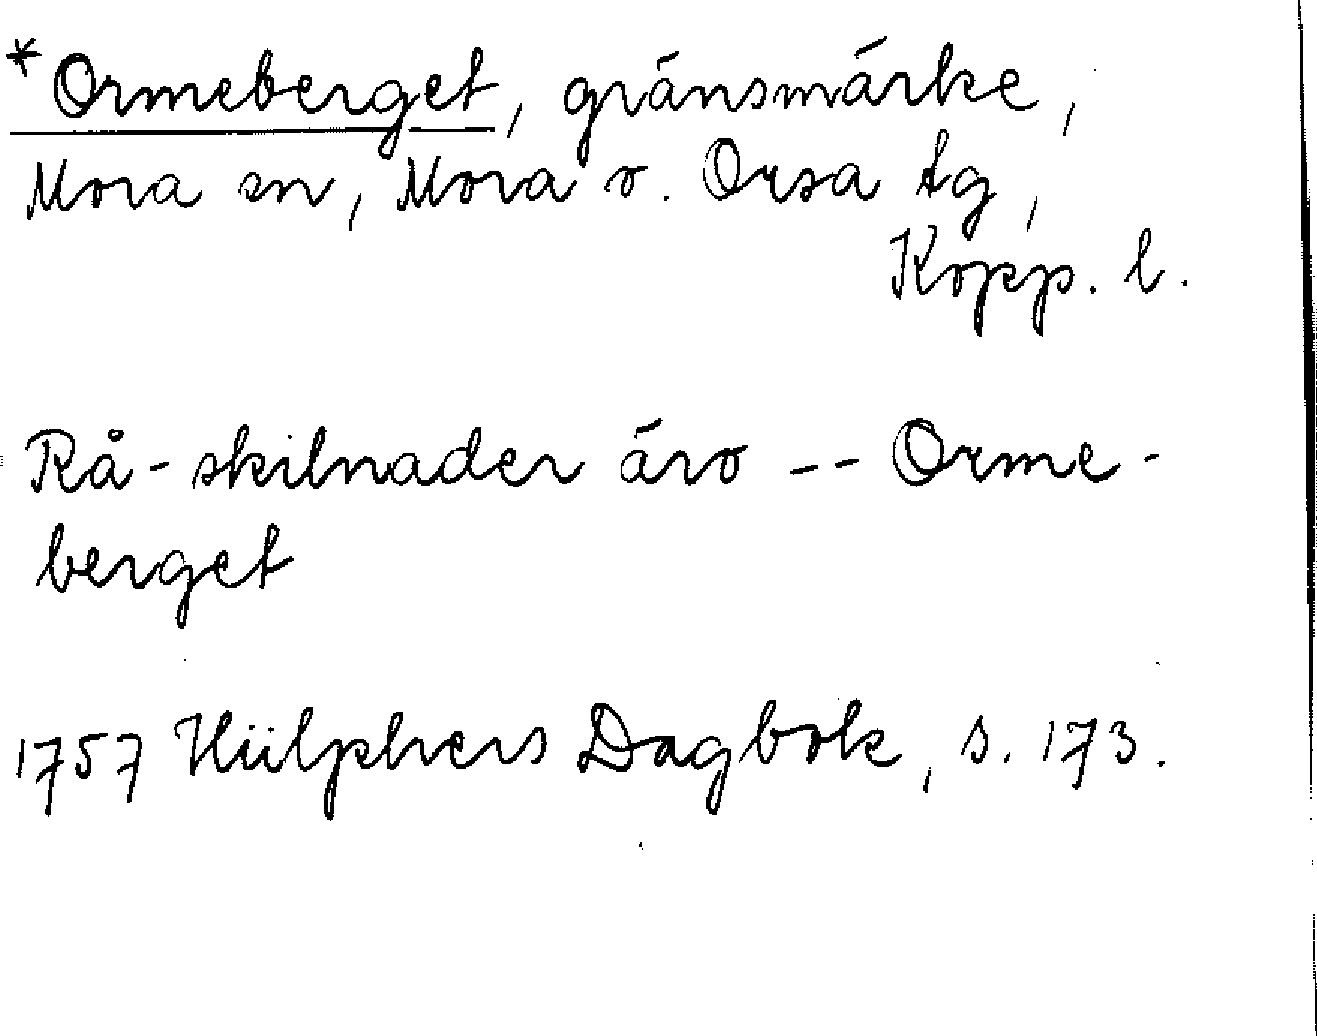 *Ormeberget, gränsmärke,
Mora sn, Mora o. Orsa tg,
Kopp. l.
Rå-skilnader äro -- Orme-
berget
1757 Hülphers Dagbok, s. 173.